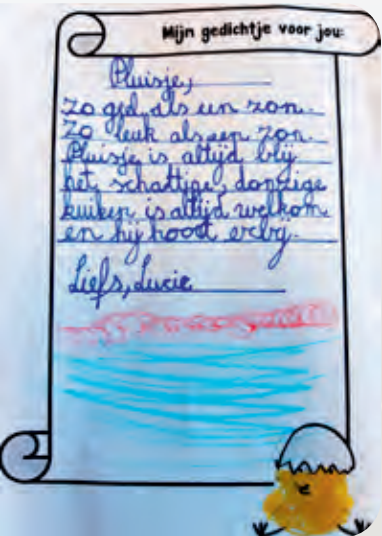 Mijn gedichtje voor jou:
Pluisje,
zo geel als een zon.
Zo leuk als een zon.
Pluisje is altijd blij
het schattige, donzige
kuiken is altijd welkom
en hij hoort erbij.
Liefs, Lucie